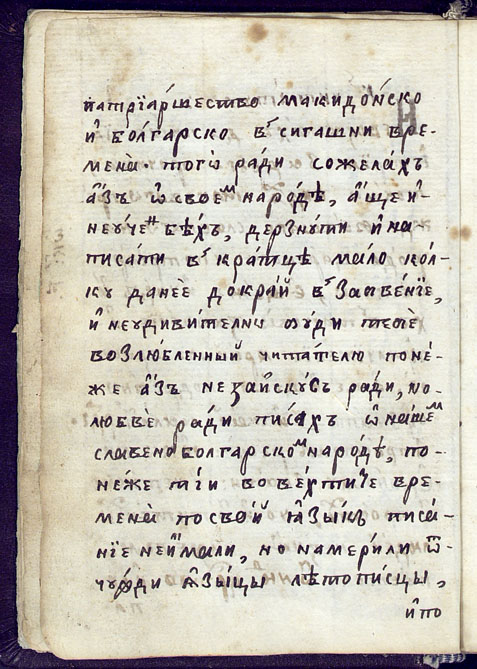 патрїа́ршество макидо́нско
и҆ болгарско в сигашни вре-
менà. тогѡ ра́ди сожела́хъ
а҆́зъ ѡ҆ своеⷨ наро́дѣ, а҆́ще и҆
неꙋ́чеⷩ бѣ́хъ, дерзнꙋ́ти и҆ на-
писа́ти в кра́тцѣ ма́ло ко́л-
кꙋ данѐе докра́й в забве́нїе,
и҆ неꙋдиви́телнѡ бꙋ́ди тебѐ
возлю́бленный чита́телю поне́-
же а҆́зъ не за и҆скꙋ́съ ра́ди, но
любвѐ ра́ди писа́хъ ѡ҆ на́шеⷨ
славено болгарскоⷨ наро́дꙋ, по-
не́же тїи во ве́хтиѐ вре-
менà по сво́й ꙗ҆зы́къ писа́-
нїе неи҆ма́ли, но намерѝли ѿ-
чꙋ́жди ꙗ҆зы́цы лѣтопи́сцы,
и҆ по